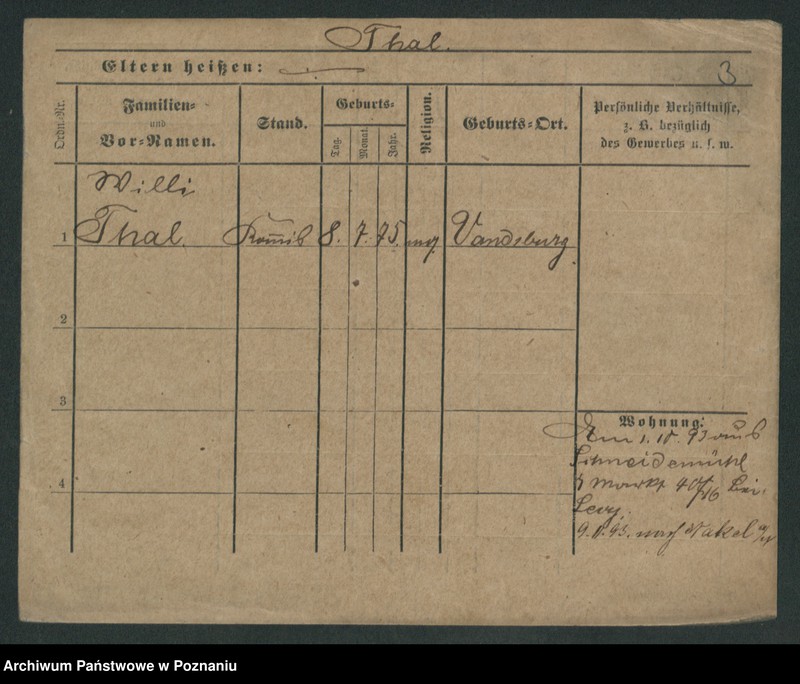 Thal.
Eltern heißen:
3
Ordn.-Nr.
Familien-
und
Vor-Namen.
Stand.
Geburts-
Tag.
Monat.
Jahr.
Religion.
Geburts-Ort.
Persönliche Verhältnisse,
z. B. bezüglich
des Gewerbes u. s. w.
Willi
1 Thal. 8. 7. 75. Vandsburg
2
3
Wohnung:
Am 1. 10. 93 aus
Schneidemühl
Markt bei
4
Levy.
93. nach Nakel
Archiwum Państwowe w Poznaniu